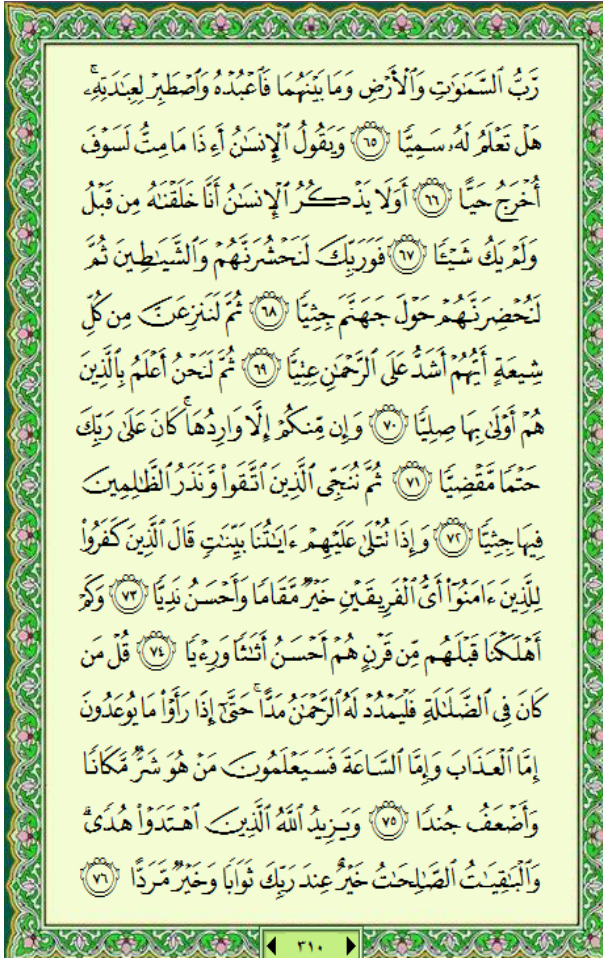 رَّبُّ ٱلسَّمَٰوَٰتِ وَٱلْأَرْضِ وَمَا بَيْنَهُمَا فَٱعْبُدْهُ وَٱصْطَبِرْ لِعِبَٰدَتِهِۦۚ
هَلْ تَعْلَمُ لَهُۥ سَمِيًّا ﴿٦٥﴾ وَيَقُولُ ٱلْإِنسَٰنُ أَءِذَا مَا مِتُّ لَسَوْفَ
أُخْرَجُ حَيًّا ﴿٦٦﴾ أَوَلَا يَذْكُرُ ٱلْإِنسَٰنُ أَنَّا خَلَقْنَٰهُ مِن قَبْلُ
وَلَمْ يَكُ شَيْـًٔا ﴿٦٧﴾ فَوَرَبِّكَ لَنَحْشُرَنَّهُمْ وَٱلشَّيَٰطِينَ ثُمَّ
لَنُحْضِرَنَّهُمْ حَوْلَ جَهَنَّمَ جِثِيًّا ﴿٦٨﴾ ثُمَّ لَنَنزِعَنَّ مِن كُلِّ
شِيعَةٍ أَيُّهُمْ أَشَدُّ عَلَى ٱلرَّحْمَٰنِ عِتِيًّا ﴿٦٩﴾ ثُمَّ لَنَحْنُ أَعْلَمُ بِٱلَّذِينَ
هُمْ أَوْلَىٰ بِهَا صِلِيًّا ﴿٧٠﴾ وَإِن مِّنكُمْ إِلَّا وَارِدُهَاۚ كَانَ عَلَىٰ رَبِّكَ
حَتْمًا مَّقْضِيًّا ﴿٧١﴾ ثُمَّ نُنَجِّى ٱلَّذِينَ ٱتَّقَوا۟ وَّنَذَرُ ٱلظَّٰلِمِينَ
فِيهَا جِثِيًّا ﴿٧٢﴾ وَإِذَا تُتْلَىٰ عَلَيْهِمْ ءَايَٰتُنَا بَيِّنَٰتٍ قَالَ ٱلَّذِينَ كَفَرُوا۟
لِلَّذِينَ ءَامَنُوٓا۟ أَىُّ ٱلْفَرِيقَيْنِ خَيْرٌ مَّقَامًا وَأَحْسَنُ نَدِيًّا ﴿٧٣﴾ وَكَمْ
أَهْلَكْنَا قَبْلَهُم مِّن قَرْنٍ هُمْ أَحْسَنُ أَثَٰثًا وَرِءْيًا ﴿٧٤﴾ قُلْ مَن
كَانَ فِى ٱلضَّلَٰلَةِ فَلْيَمْدُدْ لَهُ ٱلرَّحْمَٰنُ مَدًّاۚ حَتَّىٰٓ إِذَا رَأَوْا۟ مَا يُوعَدُونَ
إِمَّا ٱلْعَذَابَ وَإِمَّا ٱلسَّاعَةَ فَسَيَعْلَمُونَ مَنْ هُوَ شَرٌّ مَّكَانًا
وَأَضْعَفُ جُندًا ﴿٧٥﴾ وَيَزِيدُ ٱللَّهُ ٱلَّذِينَ ٱهْتَدَوْا۟ هُدًىۗ
وَٱلْبَٰقِيَٰتُ ٱلصَّٰلِحَٰتُ خَيْرٌ عِندَ رَبِّكَ ثَوَابًا وَخَيْرٌ مَّرَدًّا ﴿٧٦﴾
٣١٠